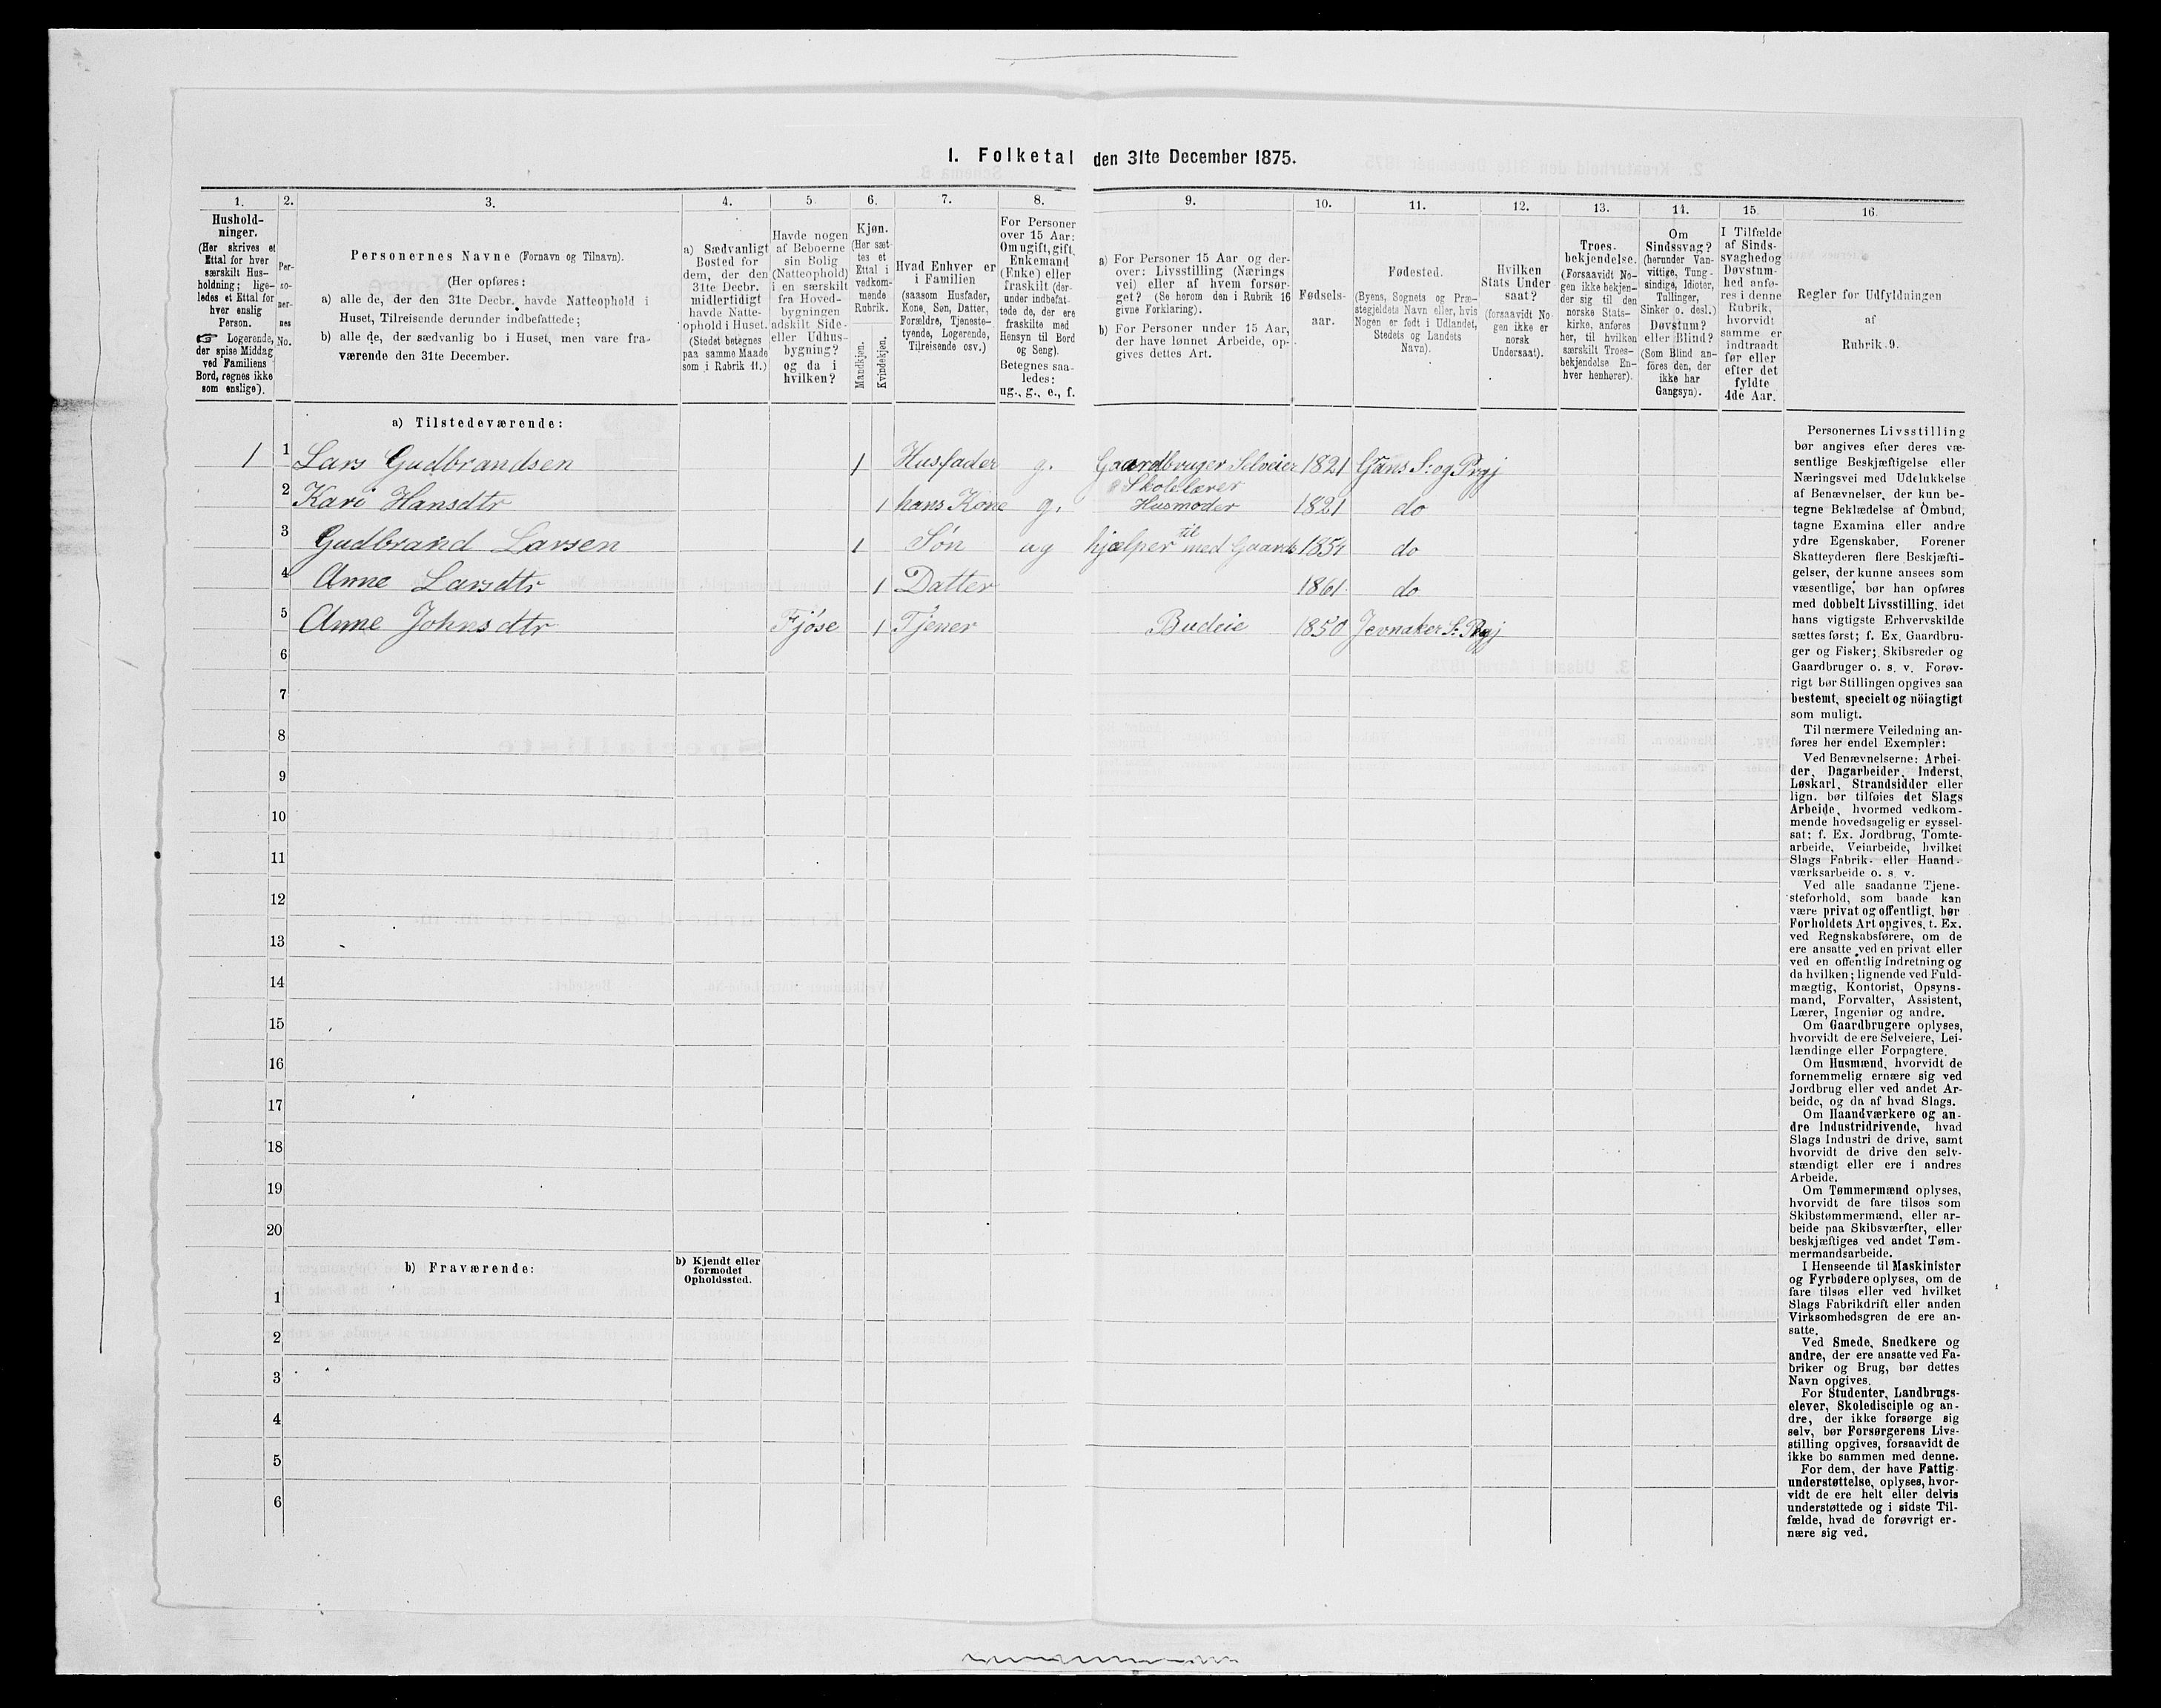 1. Folketal den 31te December 1875.
1. 2. 3. 4. 5. 6. 7. 8. 9. 10. 11. 12. 13. 14. 15. 16.
Hushold-
ninger.
(Her skrives et
Ettal for hver
særskilt Hus-
holdning; lige-
ledes et Ettal for
hver enslig
Person.
☞ Logerende,
der spise Middag
ved Familiens
Bord, regnes ikke
som enslige).
Per-
so-
ner-
nes
No.
Personernes Navne (Fornavn og Tilnavn).
(Her opføres:
a) alle de, der den 31te Decbr. havde Natteophold i
Huset, Tilreisende derunder indbefattede;
b) alle de, der sædvanlig bo i Huset, men vare fra-
værende den 31te December.
a) Sædvanligt
Bosted for
dem, der den
31te Decbr.
midlertidigt
havde Natte-
ophold i Huset.
(Stedet betegnes
paa samme Maade
som i Rubrik 11.)
Havde nogen
af Beboerne
sin Bolig
(Natteophold)
i en særskilt
fra Hoved-
bygningen
adskilt Side-
eller Udhus-
bygning?
og da i
hvilken?
Kjøn.
(Her sæt-
tes et
Ettal i
vedkom-
mende
Rubrik.
Mandkjøn.
Kvindekjøn.
Hvad Enhver er
i Familien
(saasom Husfader,
Kone, Søn, Datter,
Forældre, Tjeneste-
tyende, Logerende,
Tilreisende osv.)
For Personer
over 15 Aar:
Om ugift, gift,
Enkemand
(Enke) eller
fraskilt (der-
under indbefat-
tede de, der ere
fraskilte med
Hensyn til Bord
og Seng).
Betegnes saa-
ledes:
ug., g., e., f.
a) For Personer 15 Aar og der-
over: Livsstilling (Nærings
vei) eller af hvem forsør-
get? (Se herom den i Rubrik 16
givne Forklaring).
b) For Personer under 15 Aar,
der have lønnet Arbeide, op-
gives dettes Art.
Fødsels-
aar.
Fødested.
(Byens, Sognets og Præ-
stegjeldets Navn eller, hvis
Nogen er født i Udlandet,
Stedets og Landets
Navn).
Hvilken
Stats Under
saat?
(forsaavidt No-
gen ikke er
norsk
Undersaat).
Troes-
bekjendelse.
(Forsaavidt No-
gen ikke bekjen-
der sig til den
norske Stats-
kirke, anføres
her, til hvilken
særskilt Troes-
bekjendelse En-
hver henhører).
Om
Sindssvag?
(herunder Van-
vittige, Tung-
sindige, Idioter,
Tullinger,
Sinker o. desl.)
Døvstum?
eller Blind?
(Som Blind an-
føres den, der
ikke har
Gangsyn).
I Tilfælde
af Sinds-
svaghed og
Døvstum-
hed anfø-
res i denne
Rubrik,
hvorvidt
samme er
indtraadt
før eller
efter det
fyldte
4de Aar.
Regler for Udfyldningen
af
Rubrik 9.
a) Tilstedeværende:
1 1 Lars Gudbrandsen 1 Husfader g. Gaardbruger Selveier 1821 Grans S: og Prgj
Skolelærer
2 Kari Hansdtr 1 hans Kone g. Husmoder 1821 do
3 Gudbrand Larsen 1 Søn ug hjælper til med Gaards 1854 do
4 Anne Larsdtr 1 Datter 1861 do
5 Anne Johnsdtr Fjøse 1 Tjener Budeie 1850 Jevnaker S: Prgj
6
7
8
9
10
11
12
13
14
15
16
17
18
19
20
b) Fraværende:
b) Kjendt eller
formodet
Opholdssted.
1
2
3
4
5
6
Personernes Livsstilling
bør angives efter deres væ-
sentlige Beskjæftigelse eller
Næringsvei med Udelukkelse
af Benævnelser, der kun be-
tegne Beklædelse af Ombud,
tagne Examina eller andre
ydre Egenskaber. Forener
Skatteyderen flere Beskjæfti-
gelser, der kunne ansees som
væsentlige, bør han opføres
med dobbelt Livsstilling, idet
hans vigtigste Erhvervskilde
sættes først; f. Ex. Gaardbru-
ger og Fisker; Skibsreder og
Gaardbruger o. s. v. Forøv-
rigt bør Stillingen opgives saa
bestemt, specielt og nöiagtigt
som muligt.
Til nærmere Veiledning an-
føres her endel Exempler:
Ved Benævnelserne: Arbei-
der, Dagarbeider, Inderst,
Løskarl, Strandsidder eller
lign. bør tilføies det Slags
Arbeide, hvormed vedkom-
mende hovedsagelig er syssel-
sat; f. Ex. Jordbrug, Tomte-
arbeide, Veiarbeide, hvilket
Slags Fabrik- eller Haand-
værksarbeide o. s. v.
Ved alle saadanne Tjene-
steforhold, som baade kan
være privat og offentligt, bør
Forholdets Art opgives, t. Ex.
ved Regnskabsførere, om de
ere ansatte ved en privat eller
ved en offentlig Indretning og
da hvilken; lignende ved Fuld-
mægtig, Kontorist, Opsyns-
mand, Forvalter, Assistent,
Lærer, Ingeniør og andre.
Om Gaardbrugere oplyses,
hvorvidt de ere Selveiere, Lei-
lændinge eller Forpagtere.
Om Husmænd, hvorvidt de
fornemmelig ernære sig ved
Jordbrug eller ved andet Ar-
beide, og da af hvad Slags.
Om Haandværkere og an-
dre Industridrivende, hvad
Slags Industri de drive, samt
hvorvidt de drive den selv-
stændigt eller ere i andres
Arbeide.
Om Tømmermænd oplyses,
hvorvidt de fare tilsøs som
Skibstømmermænd, eller ar-
beide paa Skibsværfter, eller
beskjæftiges ved andet Tøm-
mermandsarbeide.
I Henseende til Maskinister
og Fyrbødere oplyses, om de
fare tilsøs eller ved hvilket
Slags Fabrikdrift eller anden
Virksomhedsgren de ere an-
satte.
Ved Smede, Snedkere og
andre, der ere ansatte ved Fa-
briker og Brug, bør dettes
Navn opgives.
For Studenter, Landbrugs-
elever, Skoledisciple og an-
dre, der ikke forsørge sig
selv, bør Forsørgerens Livs-
stilling opgives, forsaavidt de
ikke bo sammen med denne.
For dem, der have Fattig-
understøttelse, oplyses, hvor-
vidt de ere helt eller delvis
understøttede og i sidste Til-
fælde, hvad de forøvrigt er-
nære sig ved.